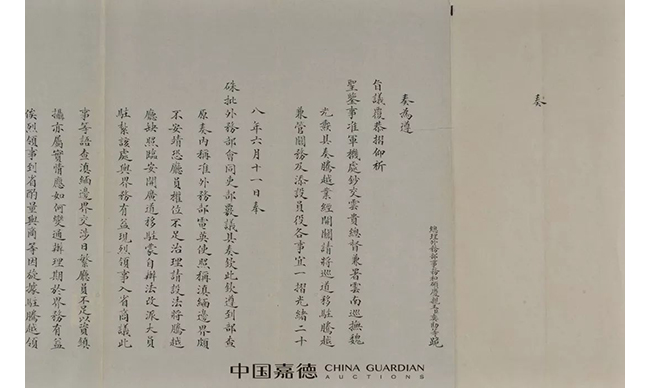 奏
總理外務部事務和碩慶親王臣奕劻等跪
奏為遵
旨議覆恭摺仰祈
聖鑒事准軍機處鈔交雲貴總督兼署雲南巡撫魏
光燾具奏騰越業經開關請將巡道移駐騰越
兼管關務及添設員役各事宜一摺光緒二十
八年六月十一日奉
硃批外務部會同吏部覈議具奏欽此欽遵到部查
原奏內稱准外務部電英使照稱滇緬邊界頗
不安靖恐廳員權位不足治理請設法將騰越
廳缺照臨安開廣道移駐蒙自辦法改派大員
駐紮該處與界務有益現烈領事入省商議此
事等語查滇緬邊界交涉日繁廳員不足以資鎮
攝亦屬實情應如何變通辦理期於界務有益
俟烈領事到省酌量與商等因旋據駐騰越領
中国嘉德 CHINA GUARDIAN
AUCTIONS